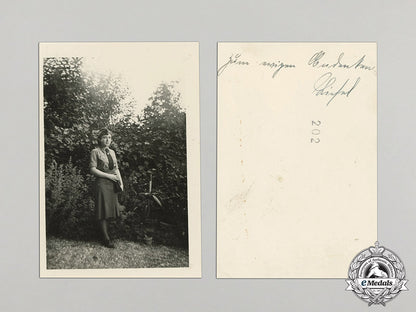 zum ewigen Andenken
Liesel
202
eMedals